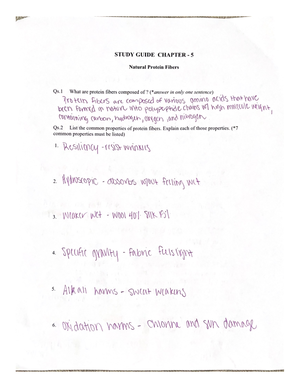 STUDY GUIDE CHAPTER - 5
Natural Protein Fibers
Qs.1 What are protein fibers composed of ? (*answer in only one sentence)
Protein Fibers are composed of various amino acids that have
been formed in nature into polypeptide chains w/ high molecular weight,
containing carbon, hydrogen, oxygen and nitrogen
Qs.2 List the common properties of protein fibers. Explain each of those properties. (*7
common properties must be listed)
1. Resiliency - resist wrinkles
2. Hydroscopic - absorbs w/out feeling wet
3. Weaker wet - wool 40% silk 15%
4. Specific gravity - fabric feels light
5. Alkali harms - sweat weakens
6. Oxidation harms - chlorine and sun damage